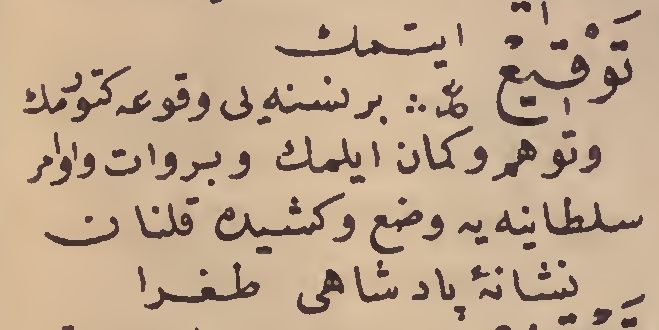 ايتمك
توقيع ع بر نسنه يى وقوعه كتورمك
وتوهم وكمان ايلمك وبروات واوامر
سلطانيه يه وضع وكشيده قلنان
نشانۀ پادشاهى طغرا